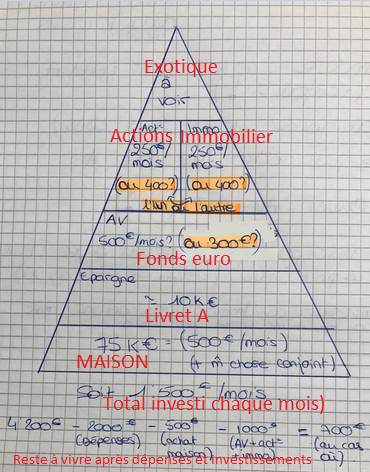 Exotique
à
voir
Act° Immo
Actions Immobilier
250€/ 250€/
mois mois
(ou 400?) (ou 400?)
l'un ou l'autre
AV
500€/mois? (ou 300€?)
Fonds euro
Epargne
≈ 10K€
Livret A
75K€ = (500€/mois)
MAISON (+ m̂ chose conjoint)
Soit 1 500€/mois
Total investi chaque mois)
4 200€ - 2000€ - 500€ - 1000€ = 700€
(dépenses) (achat maison) (AV+act° +immo) (au cas où)
Reste à vivre après dépenses et investissements